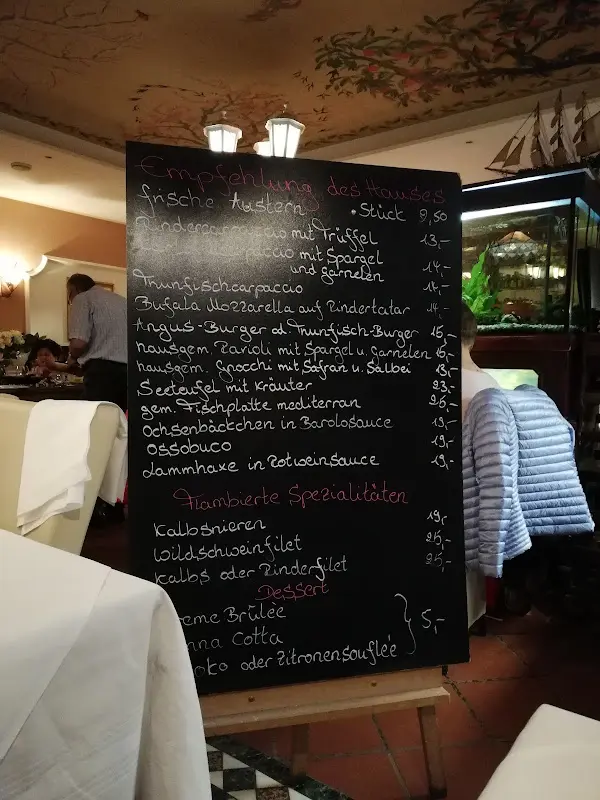 Empfehlung des Hauses
frische Austern . Stück 9,50
Rindercarpaccio mit Trüffel 13,-
mit Spargel
und garnelen 14,-
Thunfischcarpaccio 14,-
Bufala Mozzarella auf Rindertatar 14,-
Angus-Burger od. Thunfisch-Burger 16,-
hausgem. Ravioli mit Spargel u. Garnelen 16,-
hausgem. Gnocchi mit Safran u. Salbei 13,-
Seeteufel mit Kräuter 23,-
gem. Fischplatte mediterran 25,-
Ochsenbäckchen in Barolosauce 19,-
Ossobuco 19,-
Lammhaxe in Rotweinsauce 19,-
Flambierte Spezialitäten
Kalbsnieren 19,-
Wildschweinfilet 25,-
Kalbs oder Rinderfilet 25,-
Dessert
eme Brûlée
nna Cotta 5,-
oko oder Zitronensouflée